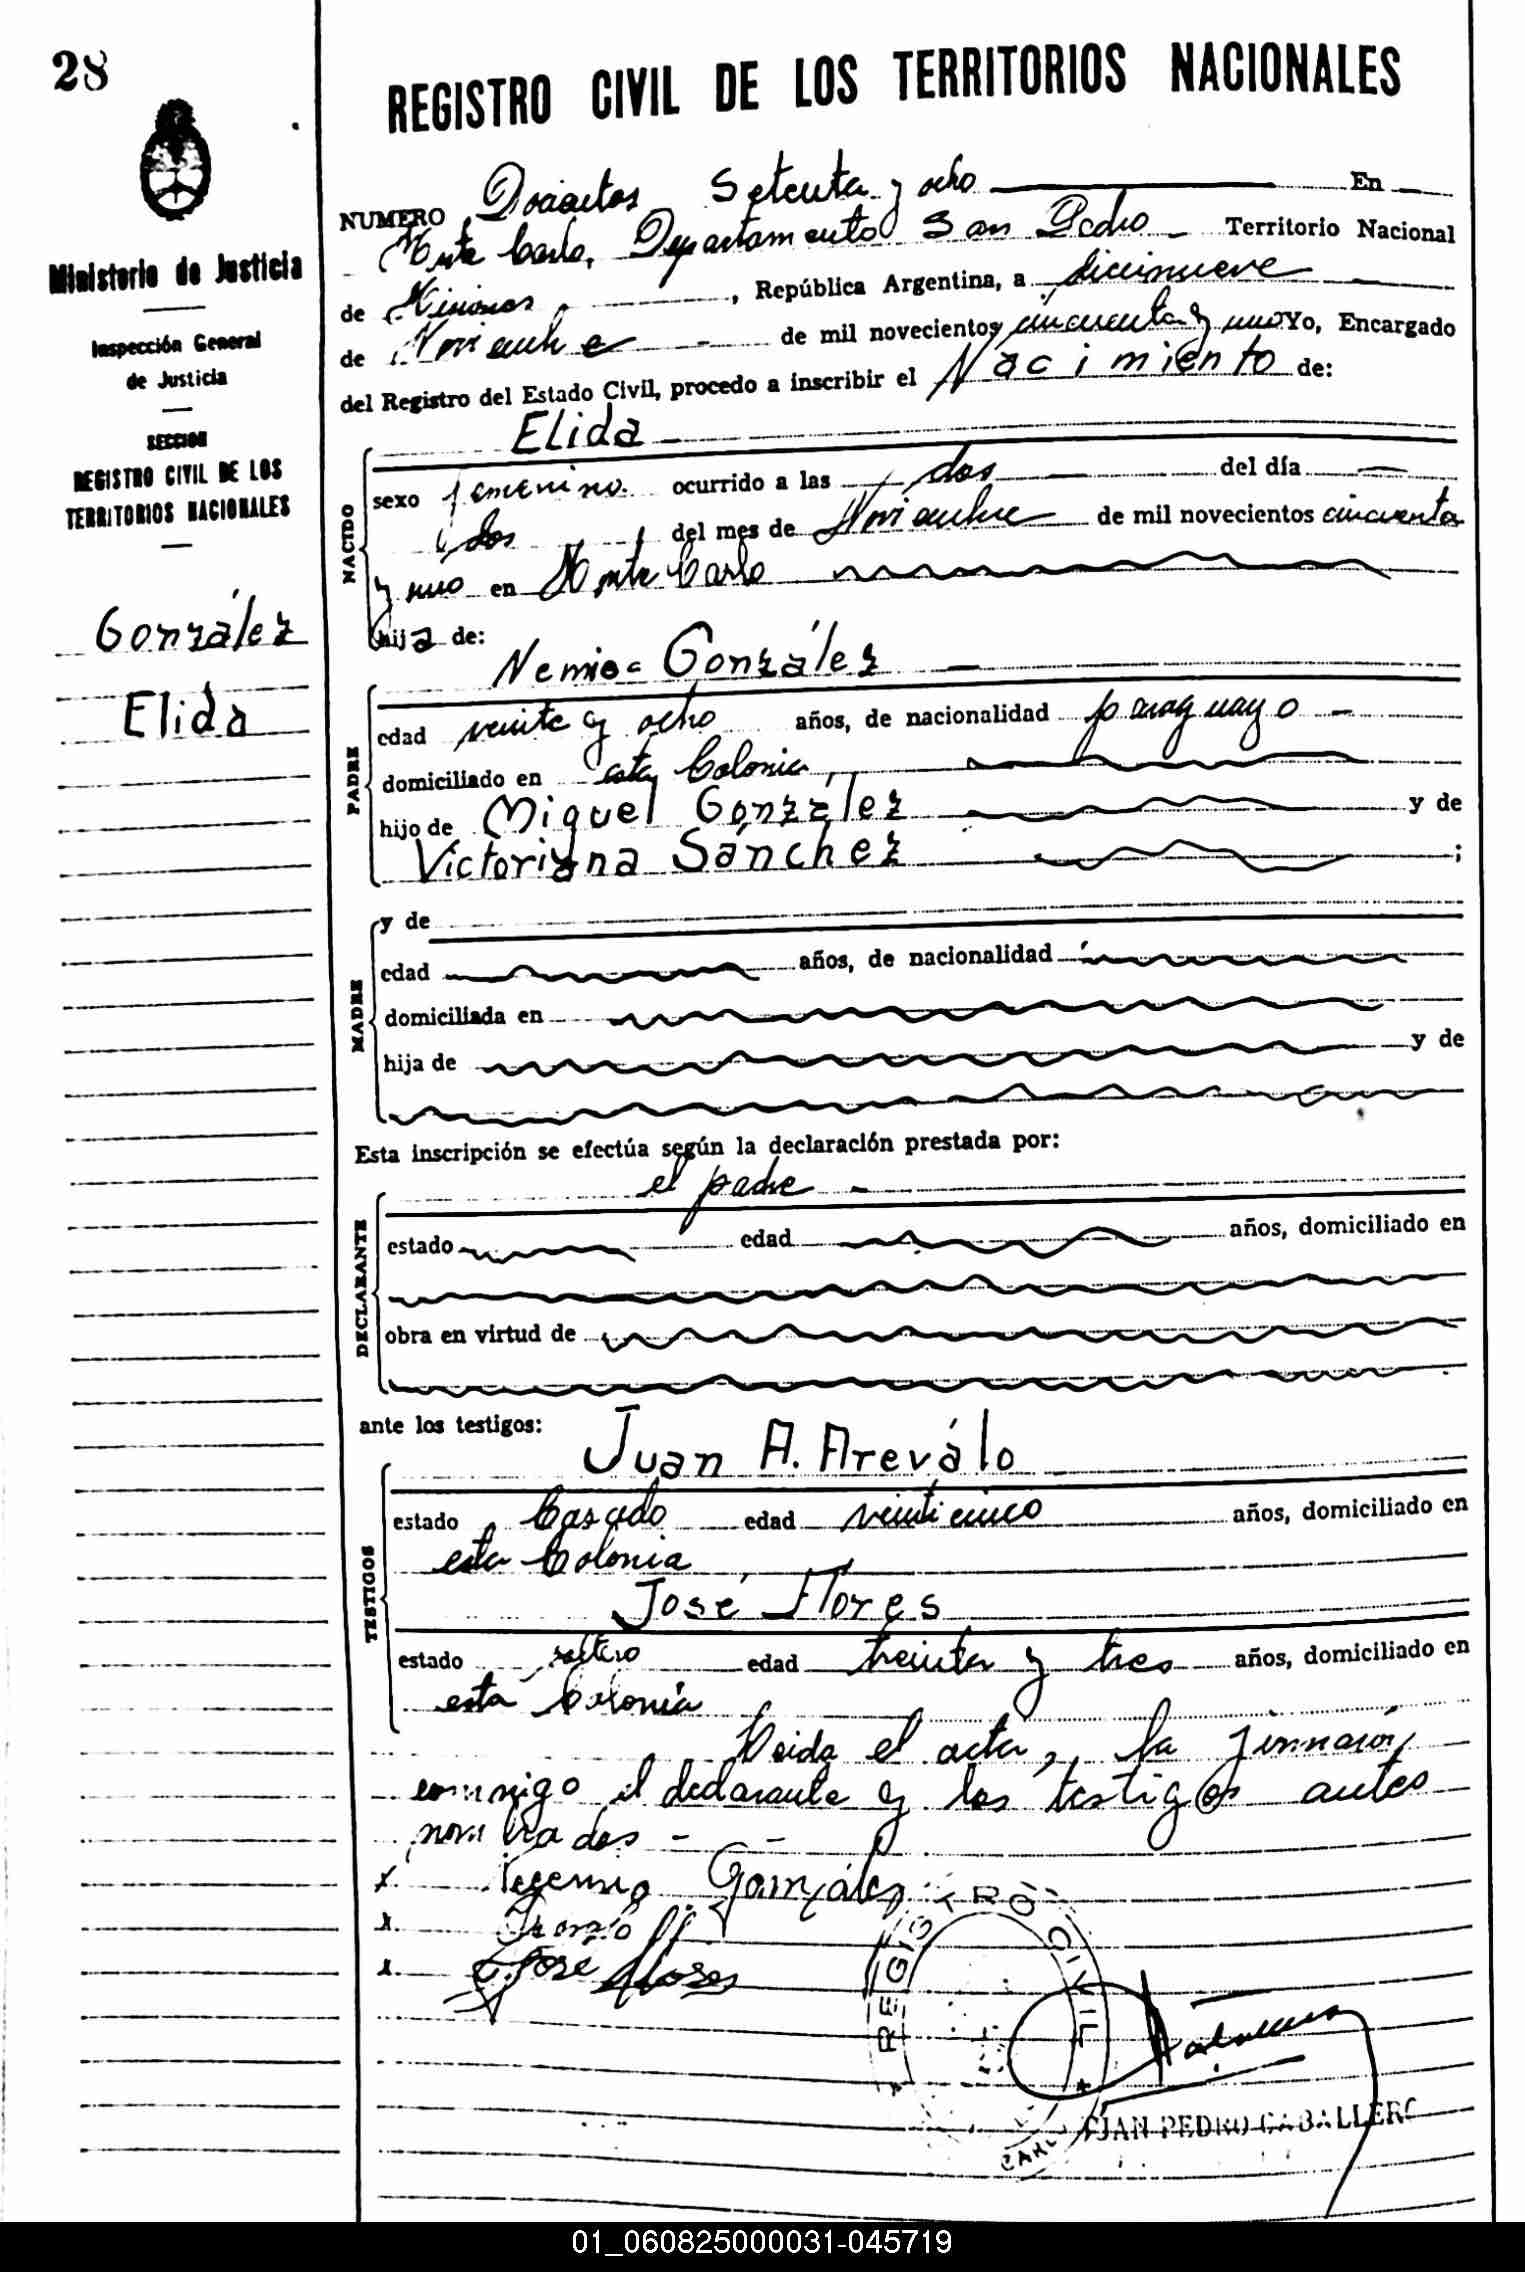 28
REGISTRO CIVIL DE LOS TERRITORIOS NACIONALES
Ministerio de Justicia
Inspección General
de Justicia
SECCION
REGISTRO CIVIL DE LOS
TERRITORIOS NACIONALES
González
Elida
NUMERO Doscientos Setenta y ocho En
Monte Carlo, Departamento San Pedro Territorio Nacional
de Misiones, República Argentina, a diecinueve
de Noviembre de mil novecientos cincuenta y uno Yo, Encargado
del Registro del Estado Civil, procedo a inscribir el Nacimiento de:
NACIDO
Elida
sexo femenino. ocurrido a las dos del día
dos del mes de Noviembre de mil novecientos cincuenta
y uno en Monte Carlo
hija de:
PADRE
González
edad veinte y ocho años, de nacionalidad paraguayo
domiciliado en esta Colonia,
hijo de Miguel González y de
Victoriana Sánchez ;
MADRE
y de
edad años, de nacionalidad
domiciliada en
hija de y de
Esta inscripción se efectúa según la declaración prestada por:
DECLARANTE
el padre
estado edad años, domiciliado en
obra en virtud de
ante los testigos:
TESTIGOS
Juan A. Areválo
estado Casado edad veinticinco años, domiciliado en
esta Colonia
José Flores
estado soltero edad treinta y tres años, domiciliado en
esta Colonia
Leida el acta, la firmaron
conmigo el declarante y los testigos antes
nombrados
x González
x
x José Flores
REGISTRO CIVIL
JUAN PEDRO CABALLERO
01_060825000031-045719